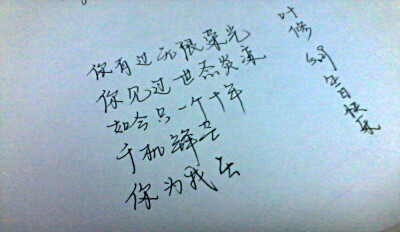 你有过无限荣光
你见过世态炎凉
如今只一个十年
千机
你为我
叶修
生日快乐